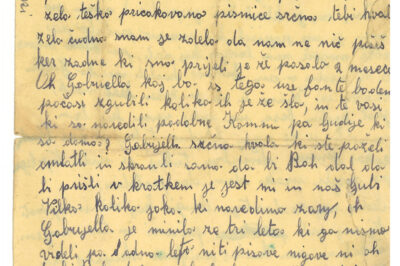 zelo teško pričakovano pismice srčna tebi hvala
zelo čudna snam se zdelo da nam ne nič pišeš
ker zadne ki smo prijeli je že posalo 2 meseca
Oh Gabriella kaj bo is tega use fante boden
počasi zgubili koliko ih je že šlo, in te vasi
ki so naredili podobne Kamnu pa ljudije ki
so doma? Gabrijella srčna hvala ki ste poželi
umlatli in shranli samo da bi Boh dal da
bi prišli v kratkem je jest mi in naš ljubi
koliko joka ki naredimo zanj, ih
Gabrijella je minilo že tri leta ki ga nismo
vidli pa Sedno leto niti pisave nigove mi oh